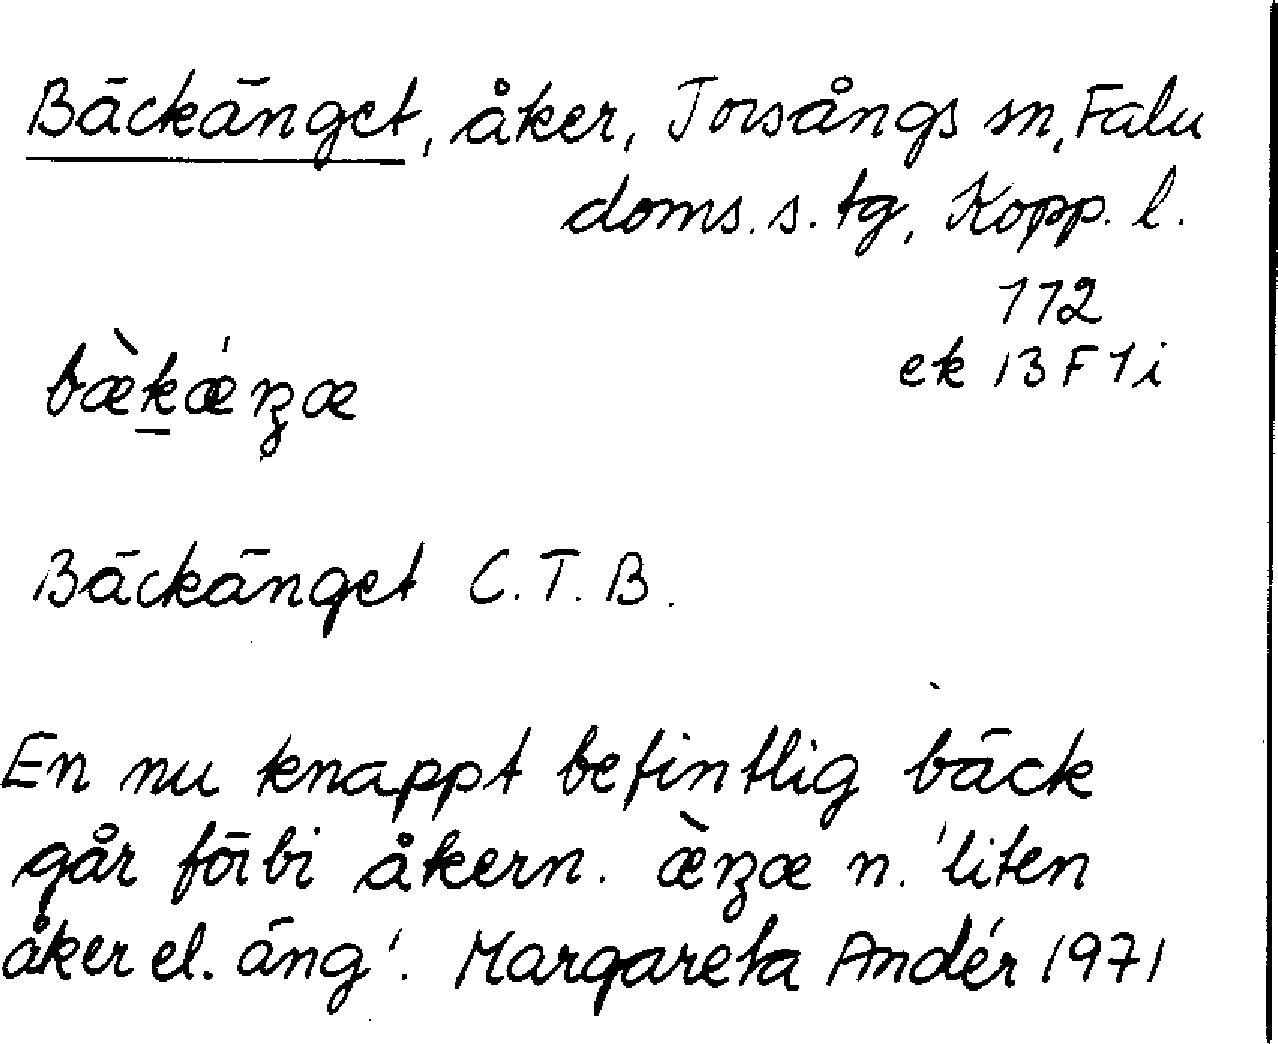 Bäckänget, åker, Torsångs sn, Falu
doms. s. tg, Kopp. l.
112
ek 13 F 1i
bæ̀kǽŋæ
Bäckänget C.T.B.
En nu knappt befintlig bäck
går förbi åkern. æ̀ŋæ n. 'liten
åker el. äng'. Margareta Andér 1971